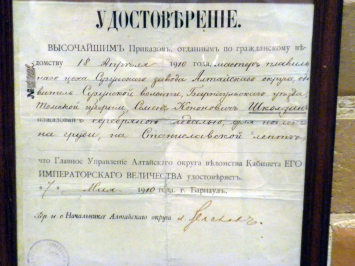 УДОСТОВѢРЕНІЕ.
ВЫСОЧАЙШИМЪ Приказомъ, отданнымъ по гражданскому вѣ-
домству 18 Апрѣля 1910, мастеръ плавиль-
наго цеха Сузунскаго завода Алтайскаго округа, об
ыватель Сузунской волости, Барнаульскаго уѣзда
Томской губерніи, Семенъ
серебряною медалью, для ношенія
на груди, на Станиславской лентѣ
что Главное Управленіе Алтайскаго округа вѣдомства Кабинета ЕГО
ИМПЕРАТОРСКАГО ВЕЛИЧЕСТВА удостовѣряетъ.
"7" Мая 1910 года г. Барнаулъ.
Вр. и. о. Начальника Алтайскаго округа